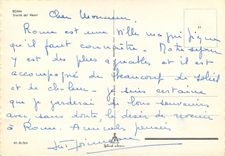 ROMA
Cher Monsieur,
Rome est une ville magnifique
qu'il faut connaître. Notre séjour
y est des plus agréables et il est
accompagné de beaucoup de soleil
et de chaleur. Je suis certaine
que je garderai de bons souvenirs
avec sans doute, le désir de revenir
à Rome. Amicales pensées